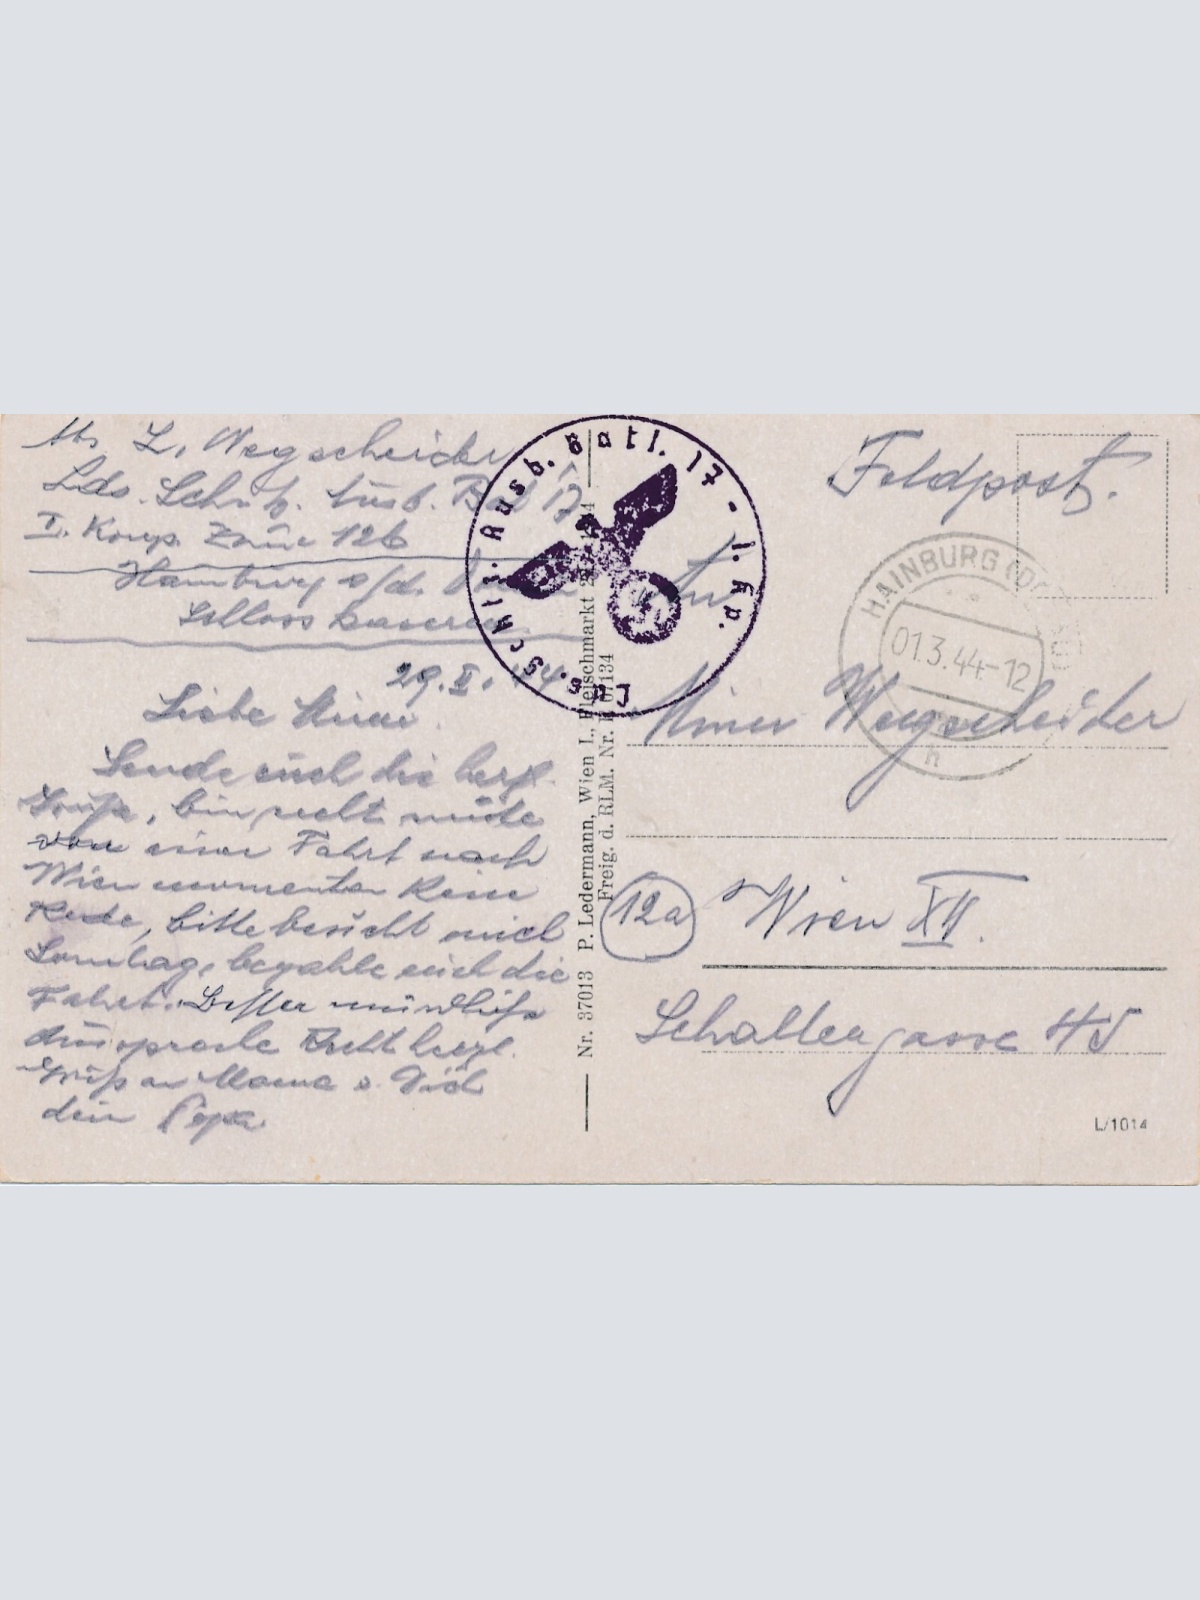 Abs L. Wegscheider
Lds. Schtz. Ausb. Bat 17
I. Komp. 126
Hainburg a/d.
Schloss
29. II. 44
Liebe
Sende euch die herzl.
Grüße, bin recht müde
von einer Fahrt nach
Wien momentan keine
Rede, bitte besucht mich
Sonntag, bezahle euch die
Fahrt. Besser mündliche
Aussprache Recht herzl.
Gruß an Mama u. Dich
dein Papa
Lds. Schtz. Ausb. Batl. 17 - 1. Kp.
Nr. 37013 P. Ledermann, Wien I., Fleischmarkt
Freig. d. RLM. Nr.
Feldpost.
HAINBURG (DO
01.3.44-12
h
Wegscheider
12a Wien XII.
Schallergasse 45
L/1014